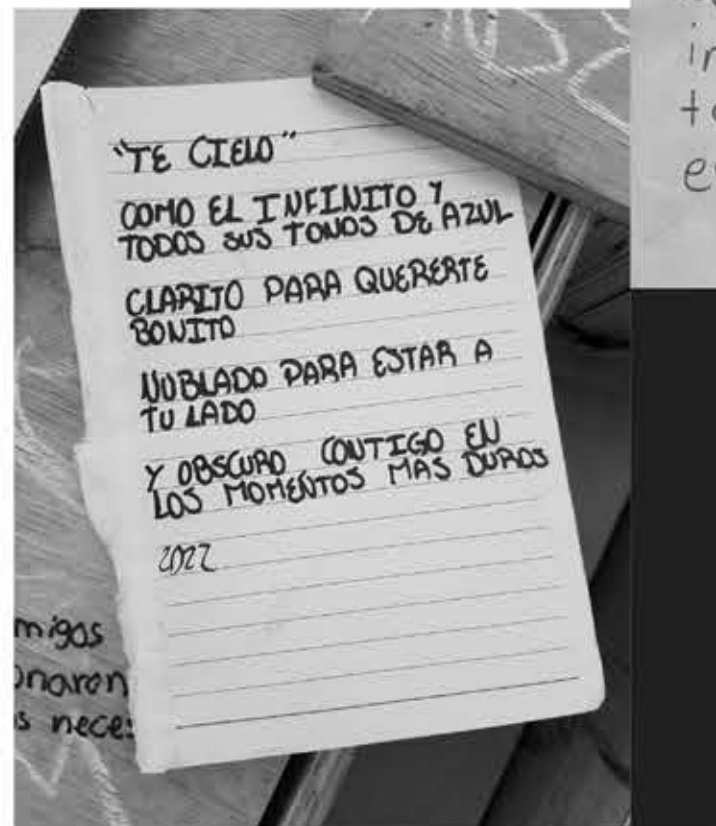 "TE CIELO"
COMO EL INFINITO Y
TODOS SUS TONOS DE AZUL
CLARITO PARA QUERERTE
BONITO
NUBLADO PARA ESTAR A
TU LADO
Y OBSCURO CONTIGO EN
LOS MOMENTOS MAS DUROS
2022
migos
onaron
s neces